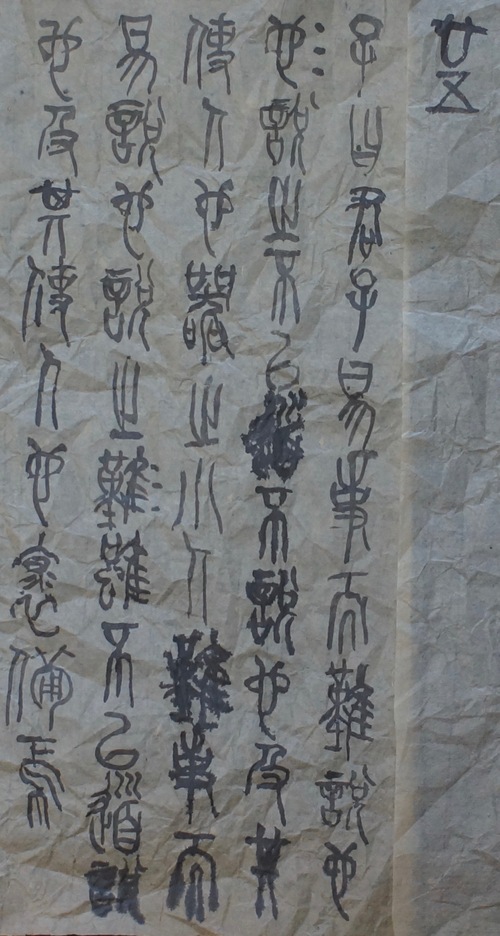 廿五
子曰君子易事而難說也
也說之不以道不說也及其
使人也器之小人難事而
易說也說之難雖不以道說
也及其使人也備焉